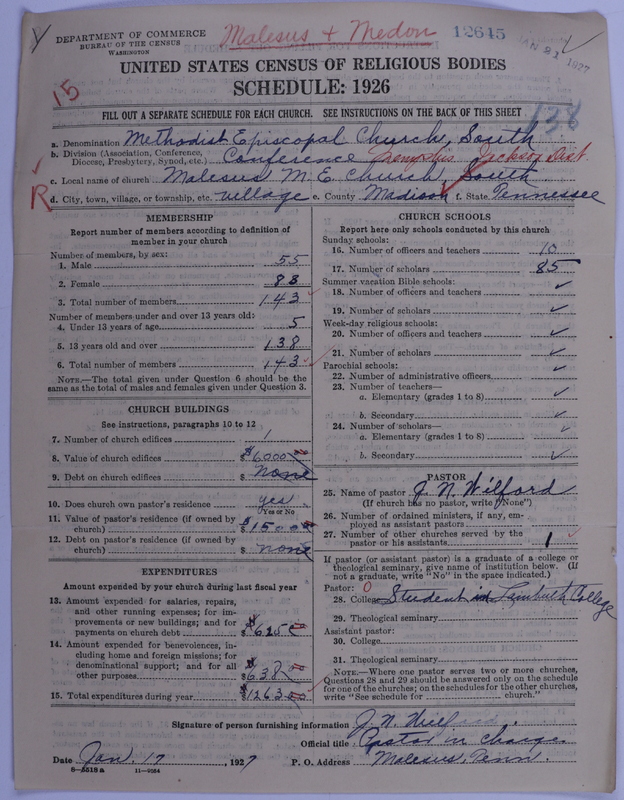 DEPARTMENT OF COMMERCE
BUREAU OF THE CENSUS
WASHINGTON
Malesus + Medon
12645
JAN 21 1927
15
UNITED STATES CENSUS OF RELIGIOUS BODIES
SCHEDULE: 1926
FILL OUT A SEPARATE SCHEDULE FOR EACH CHURCH. SEE INSTRUCTIONS ON THE BACK OF THIS SHEET
138
a. Denomination Methodist Episcopal Church, South
b. Division (Association, Conference, Diocese, Presbytery, Synod, etc.) Conference Memphis Jackson Dist
c. Local name of church Malesus M. E. Church, South
R
d. City, town, village, or township, etc. village e. County Madison f. State Tennessee
MEMBERSHIP
Report number of members according to definition of
member in your church
Number of members, by sex:
1. Male 55
2. Female 88
3. Total number of members 143
Number of members under and over 13 years old:
4. Under 13 years of age 5
5. 13 years old and over 138
6. Total number of members 143
NOTE.—The total given under Question 6 should be the
same as the total of males and females given under Question 3.
CHURCH BUILDINGS
See instructions, paragraphs 10 to 12
7. Number of church edifices 1
8. Value of church edifices $6000 00
9. Debt on church edifices $ none
10. Does church own pastor's residence yes
Yes or No
11. Value of pastor's residence (if owned by
church) $1500 00
12. Debt on pastor's residence (if owned by
church) $ none
EXPENDITURES
Amount expended by your church during last fiscal year
13. Amount expended for salaries, repairs,
and other running expenses; for im-
provements or new buildings; and for
payments on church debt $625
14. Amount expended for benevolences, in-
cluding home and foreign missions; for
denominational support; and for all
other purposes $638
15. Total expenditures during year $1263 00
CHURCH SCHOOLS
Report here only schools conducted by this church
Sunday schools:
16. Number of officers and teachers 10
17. Number of scholars 85
Summer vacation Bible schools:
18. Number of officers and teachers
19. Number of scholars
Week-day religious schools:
20. Number of officers and teachers
21. Number of scholars
Parochial schools:
22. Number of administrative officers
23. Number of teachers—
a. Elementary (grades 1 to 8)
b. Secondary
24. Number of scholars—
a. Elementary (grades 1 to 8)
b. Secondary
PASTOR
25. Name of pastor J. N. Wilford
(If church has no pastor, write "None")
26. Number of ordained ministers, if any, em-
ployed as assistant pastors
27. Number of other churches served by the
pastor or his assistants 1
If pastor (or assistant pastor) is a graduate of a college or
theological seminary, give name of institution below. (If
not a graduate, write "No" in the space indicated.)
Pastor: 0
28. College Student in Lambuth College
29. Theological seminary
Assistant pastor:
30. College
31. Theological seminary
NOTE.—Where one pastor serves two or more churches,
Questions 28 and 29 should be answered only on the schedule
for one of the churches; on the schedules for the other churches,
write "See schedule for church."
Signature of person furnishing information J. N. Wilford.
Official title Pastor in charge.
Date Jan. 17, 1927 P. O. Address Malesus, Tenn.
8—5518 a 11—9554